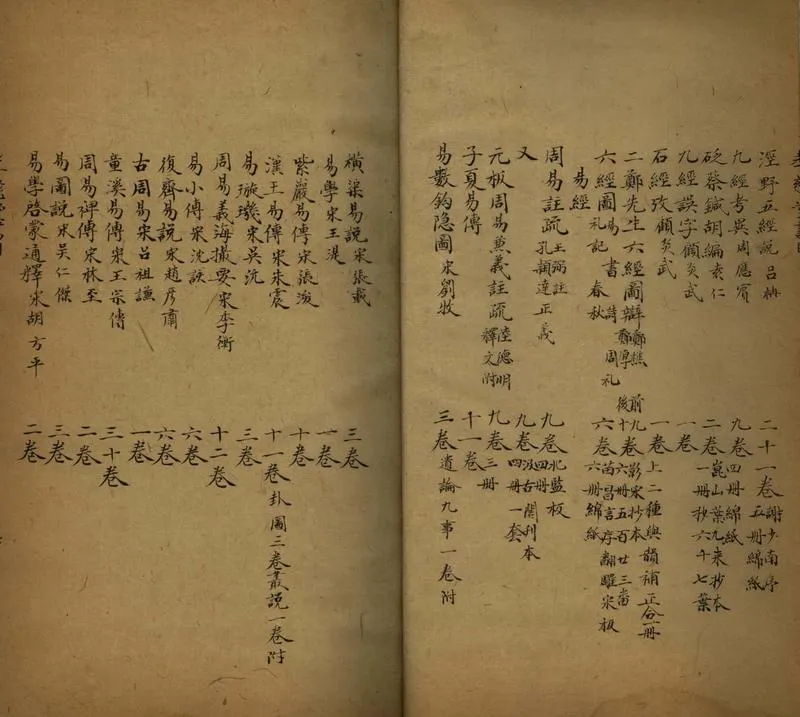 涇野五經説 呂柟 二十一卷 謝少南序 五册綿紙
九經考異 周應賓 九卷 四册綿紙
砭蔡鍼胡編 袁仁 二卷 崑山葉九來抄本 一册抄六十七葉
九經誤字 顧炎武 一卷
石經攷 顧炎武 一卷 上二種與韻補正合一册
二鄭先生六經圖辯 鄭樵 鄭厚 前九 後十 卷 影宋抄本 六册五百廿三畨
六經圖 易 書 詩 周礼 礼記 春秋 六卷 苗昌言序翻雕宋板 六册綿紙
易經
周易註疏 王弼註 孔穎達正義 九卷 北監板 四册
又 九卷 汲古閣刊本 四册一套
元板周易兼義註疏 陸德明釋文附 九卷 三册
子夏易傳 十一卷
易數鈎隐圖 宋劉牧 三卷 遺論九事一卷附
橫渠易説 宋張載 三卷
易學 宋王湜 一卷
紫巖易傳 宋張浚 十卷
漢上易傳 宋朱震 十一卷 卦圖三卷叢説一卷附
易璇璣 宋吴沆 三卷
周易義海撮要 宋李衡 十二卷
易小傳 宋沈該 六卷
復齋易説 宋趙彦肅 六卷
古周易 宋呂祖謙 一卷
童溪易傳 宋王宗傳 三十卷
周易裨傳 宋林至 二卷
易圖説 宋吴仁傑 三卷
易學啓蒙通釋 宋胡方平 二卷